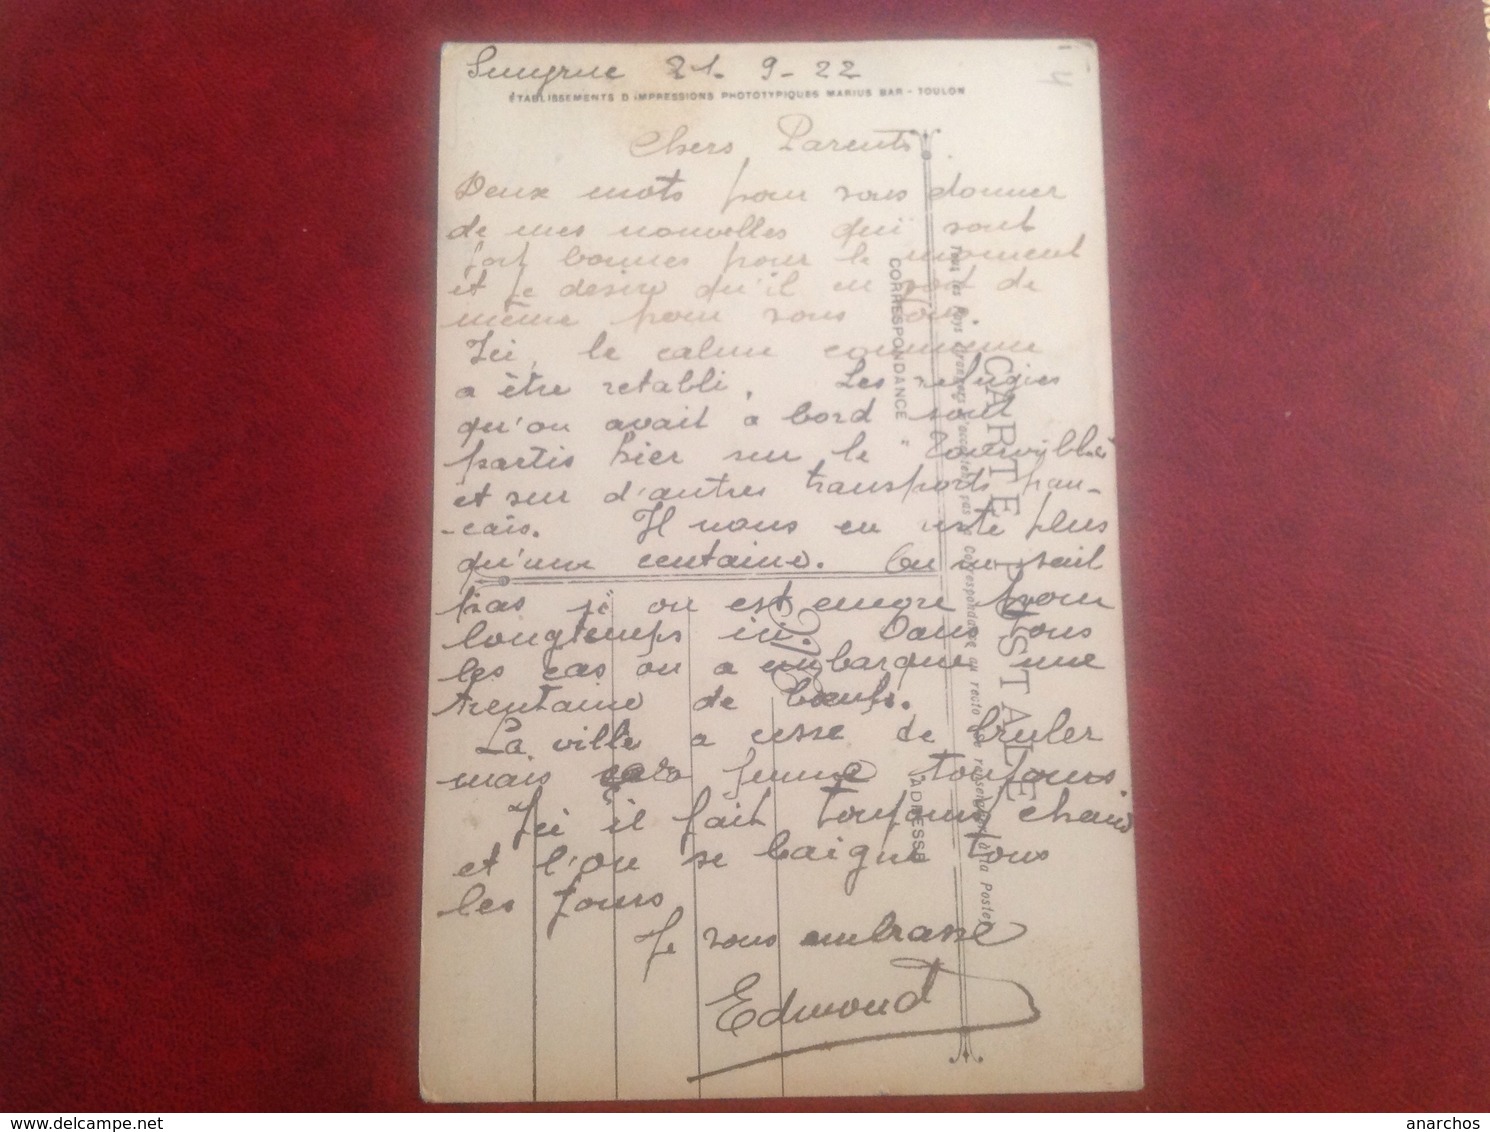 Smyrne 21. 9 - 22
ÉTABLISSEMENTS D'IMPRESSIONS PHOTOTYPIQUES MARIUS BAR - TOULON
Chers Parents
Deux mots pour vous donner
de mes nouvelles qui sont
fort bonnes pour le moment
et je désire qu'il en soit de
même pour vous tous.
Ici, le calme commence
a être retabli. Les refugies
qu'on avait a bord sont
partis hier sur le "Tourville"
et sur d'autres transports fran-
-cais. Il nous en reste plus
qu'une centaine. On ne sait
pas si on est encore pour
longtemps ici. Dans tous
les cas on a embarqué une
trentaine de bœufs.
La ville a cesse de bruler
mais fume toujours
Ici il fait toujours chaud
et l'on se baigne tous
les jours
Je vous embrasse
Edmond
CARTE POSTALE
Tous les Pays étrangers n'acceptent pas la Correspondance au recto (se renseigner à la Poste)
CORRESPONDANCE
ADRESSE
delcampe.net
anarchos